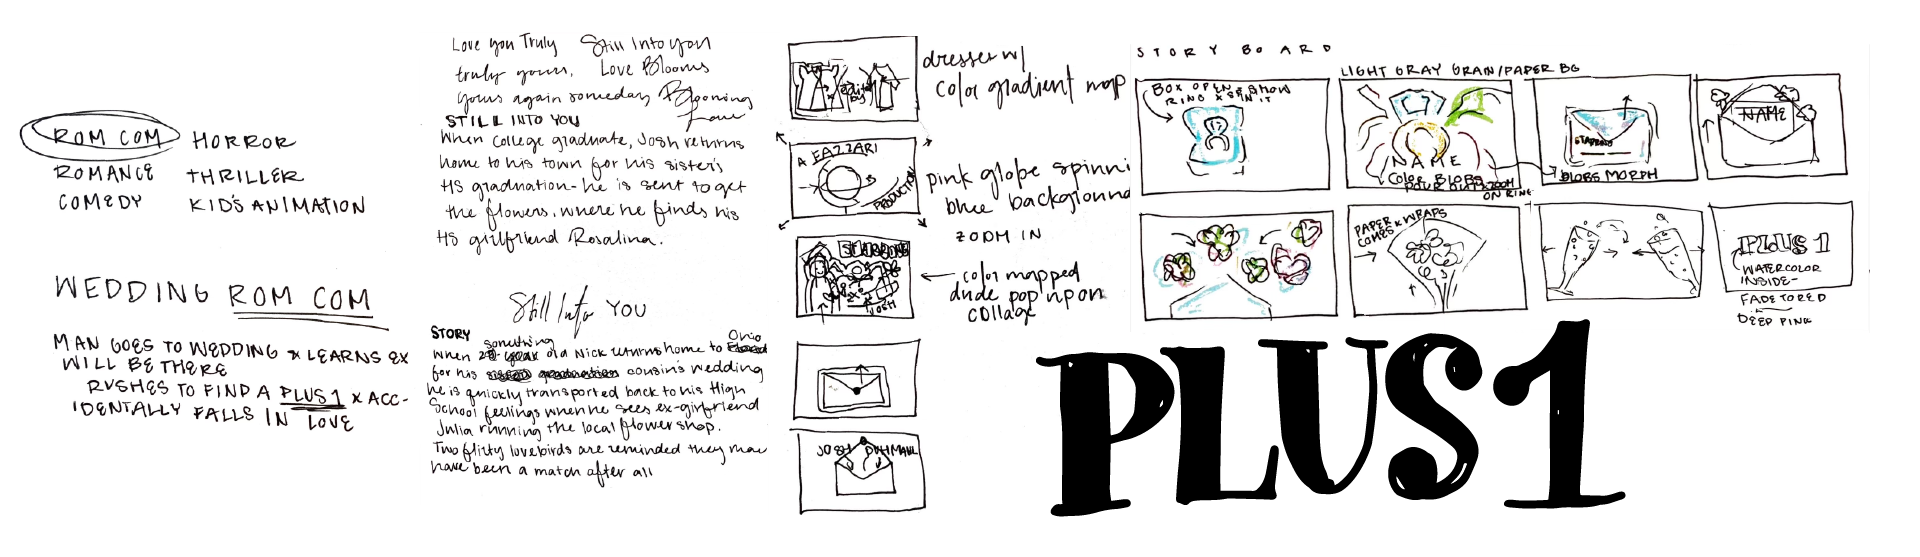 ROM COM
HORROR
ROMANCE
THRILLER
COMEDY
KID'S ANIMATION
WEDDING ROM COM
MAN GOES TO WEDDING & LEARNS EX
WILL BE THERE
RUSHES TO FIND A PLUS 1 & ACC-
IDENTALLY FALLS IN LOVE
Love you Truly
Still Into you
truly yours,
Love Blooms
yours again someday
Blooming
Love
STILL INTO YOU
When college graduate, Josh returns
home to his town for his sister's
HS graduation - he is sent to get
the flowers, where he finds his
HS girlfriend Rosalina.
Still Into YOU
STORY
something
Ohio
When old Nick returns home to
for his cousin's wedding
he is quickly transported back to his High
School feelings when he sees ex-girlfriend
Julia running the local flower shop.
Two flirty lovebirds are reminded they may
have been a match after all
edited
by
dresser w/
color gradient map
A FAZZARI
PRODUCTION
pink globe spinni
blue background
ZOOM IN
STARRING
JOSH
color mapped
dude pop up on
collage
JOSH DUHMAUL
STORY BOARD
BOX OPEN & SHOW
RING & SPIN IT
LIGHT GRAY GRAIN/PAPER BG
NAME
COLOR BLOBS
POUR OUT & ZOOM
ON RING
STARRING
BLOBS MORPH
NAME
PAPER
COMES & WRAPS
PLUS 1
WATERCOLOR
INSIDE-
FADE TO RED
DEEP PINK
PLUS 1